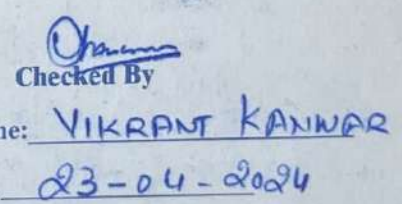 Checked By
me: VIKRANT KANWAR
23-04-2024